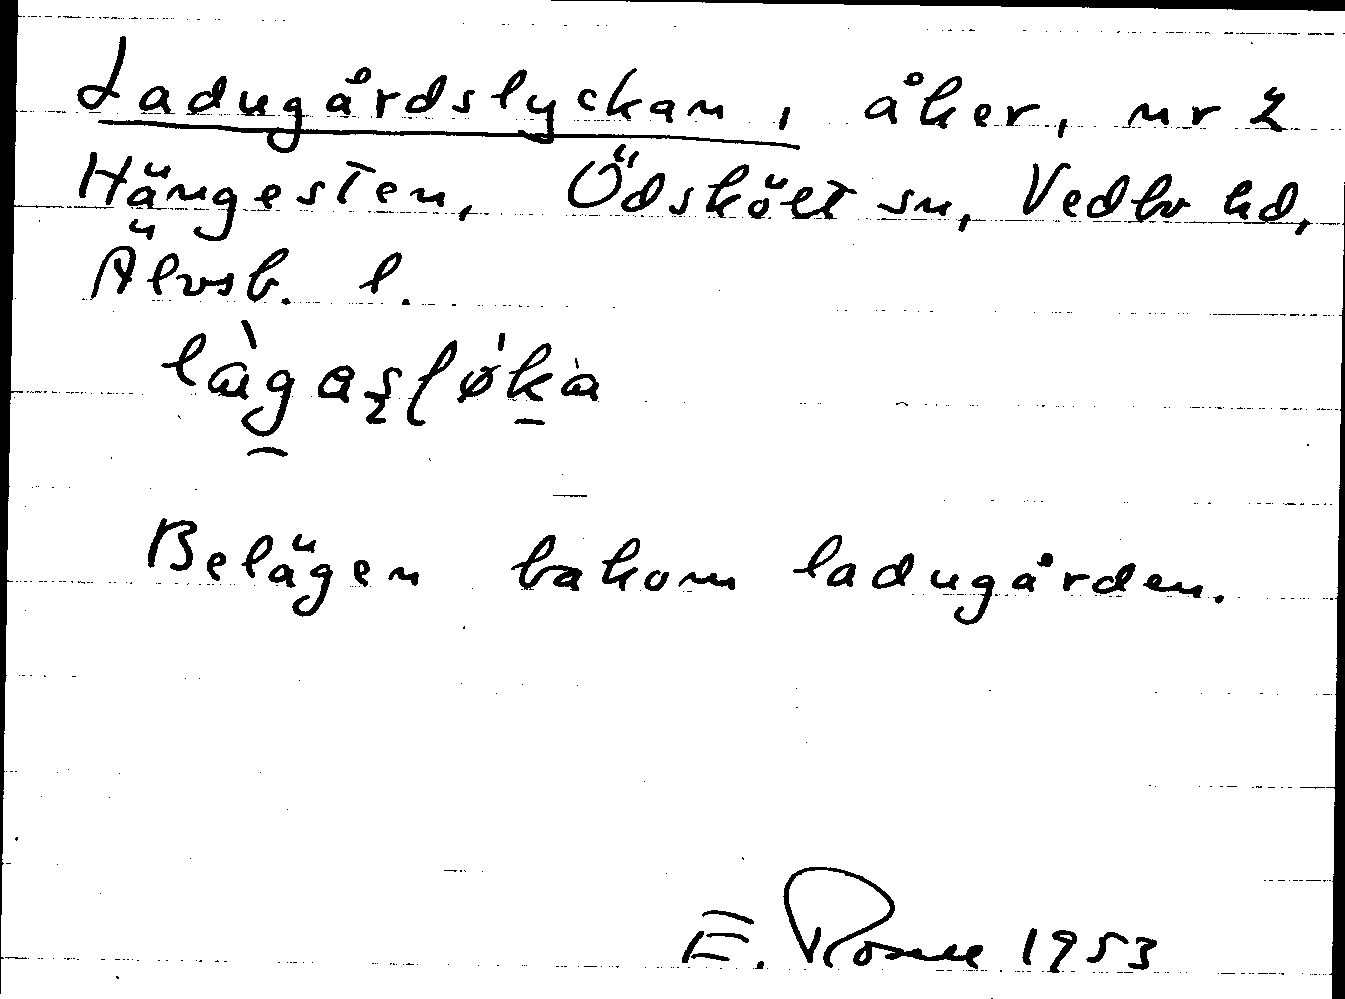 Ladugårdslyckan, åker, nr 2
Hängesten, Ödskölt sn, Vedbo hd,
Älvsb. l.
Belägen bakom ladugården.
E. 1953